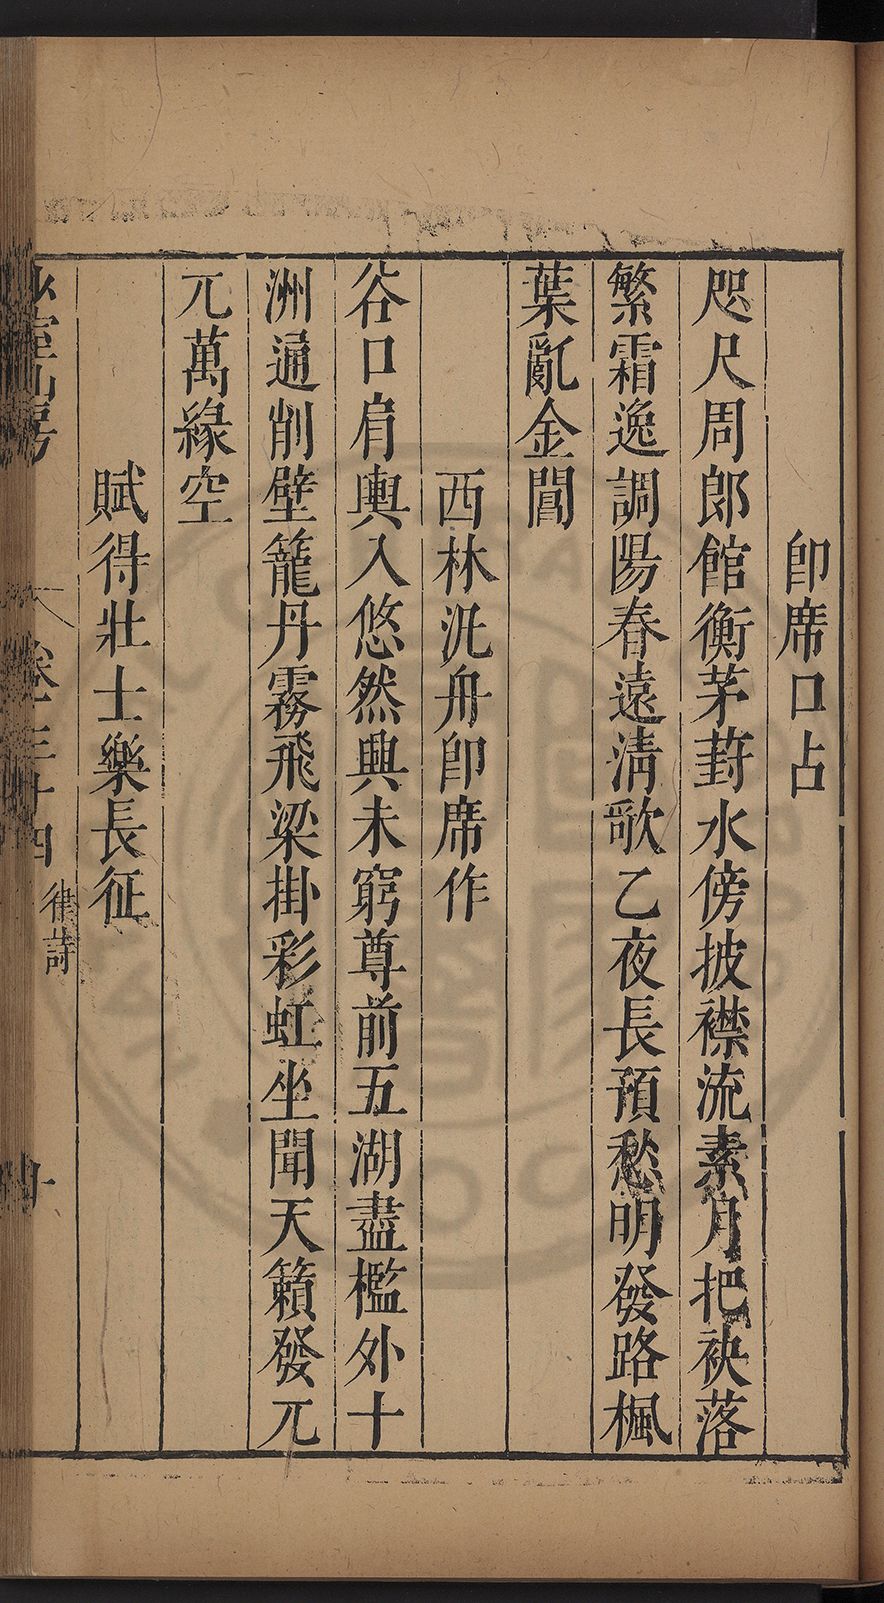 即席口占
咫尺周郎館衡茅葑水傍披襟流素月把袂落
繁霜逸調陽春遠清歌乙夜長預愁明發路楓
葉亂金閶
西林汎舟即席作
谷口肩輿入悠然興未窮尊前五湖盡檻外十
洲通削壁籠丹霧飛梁掛彩虹坐聞天籟發兀
兀萬緣空
賦得壯士樂長征
少室山房
卷三十四
律詩
十